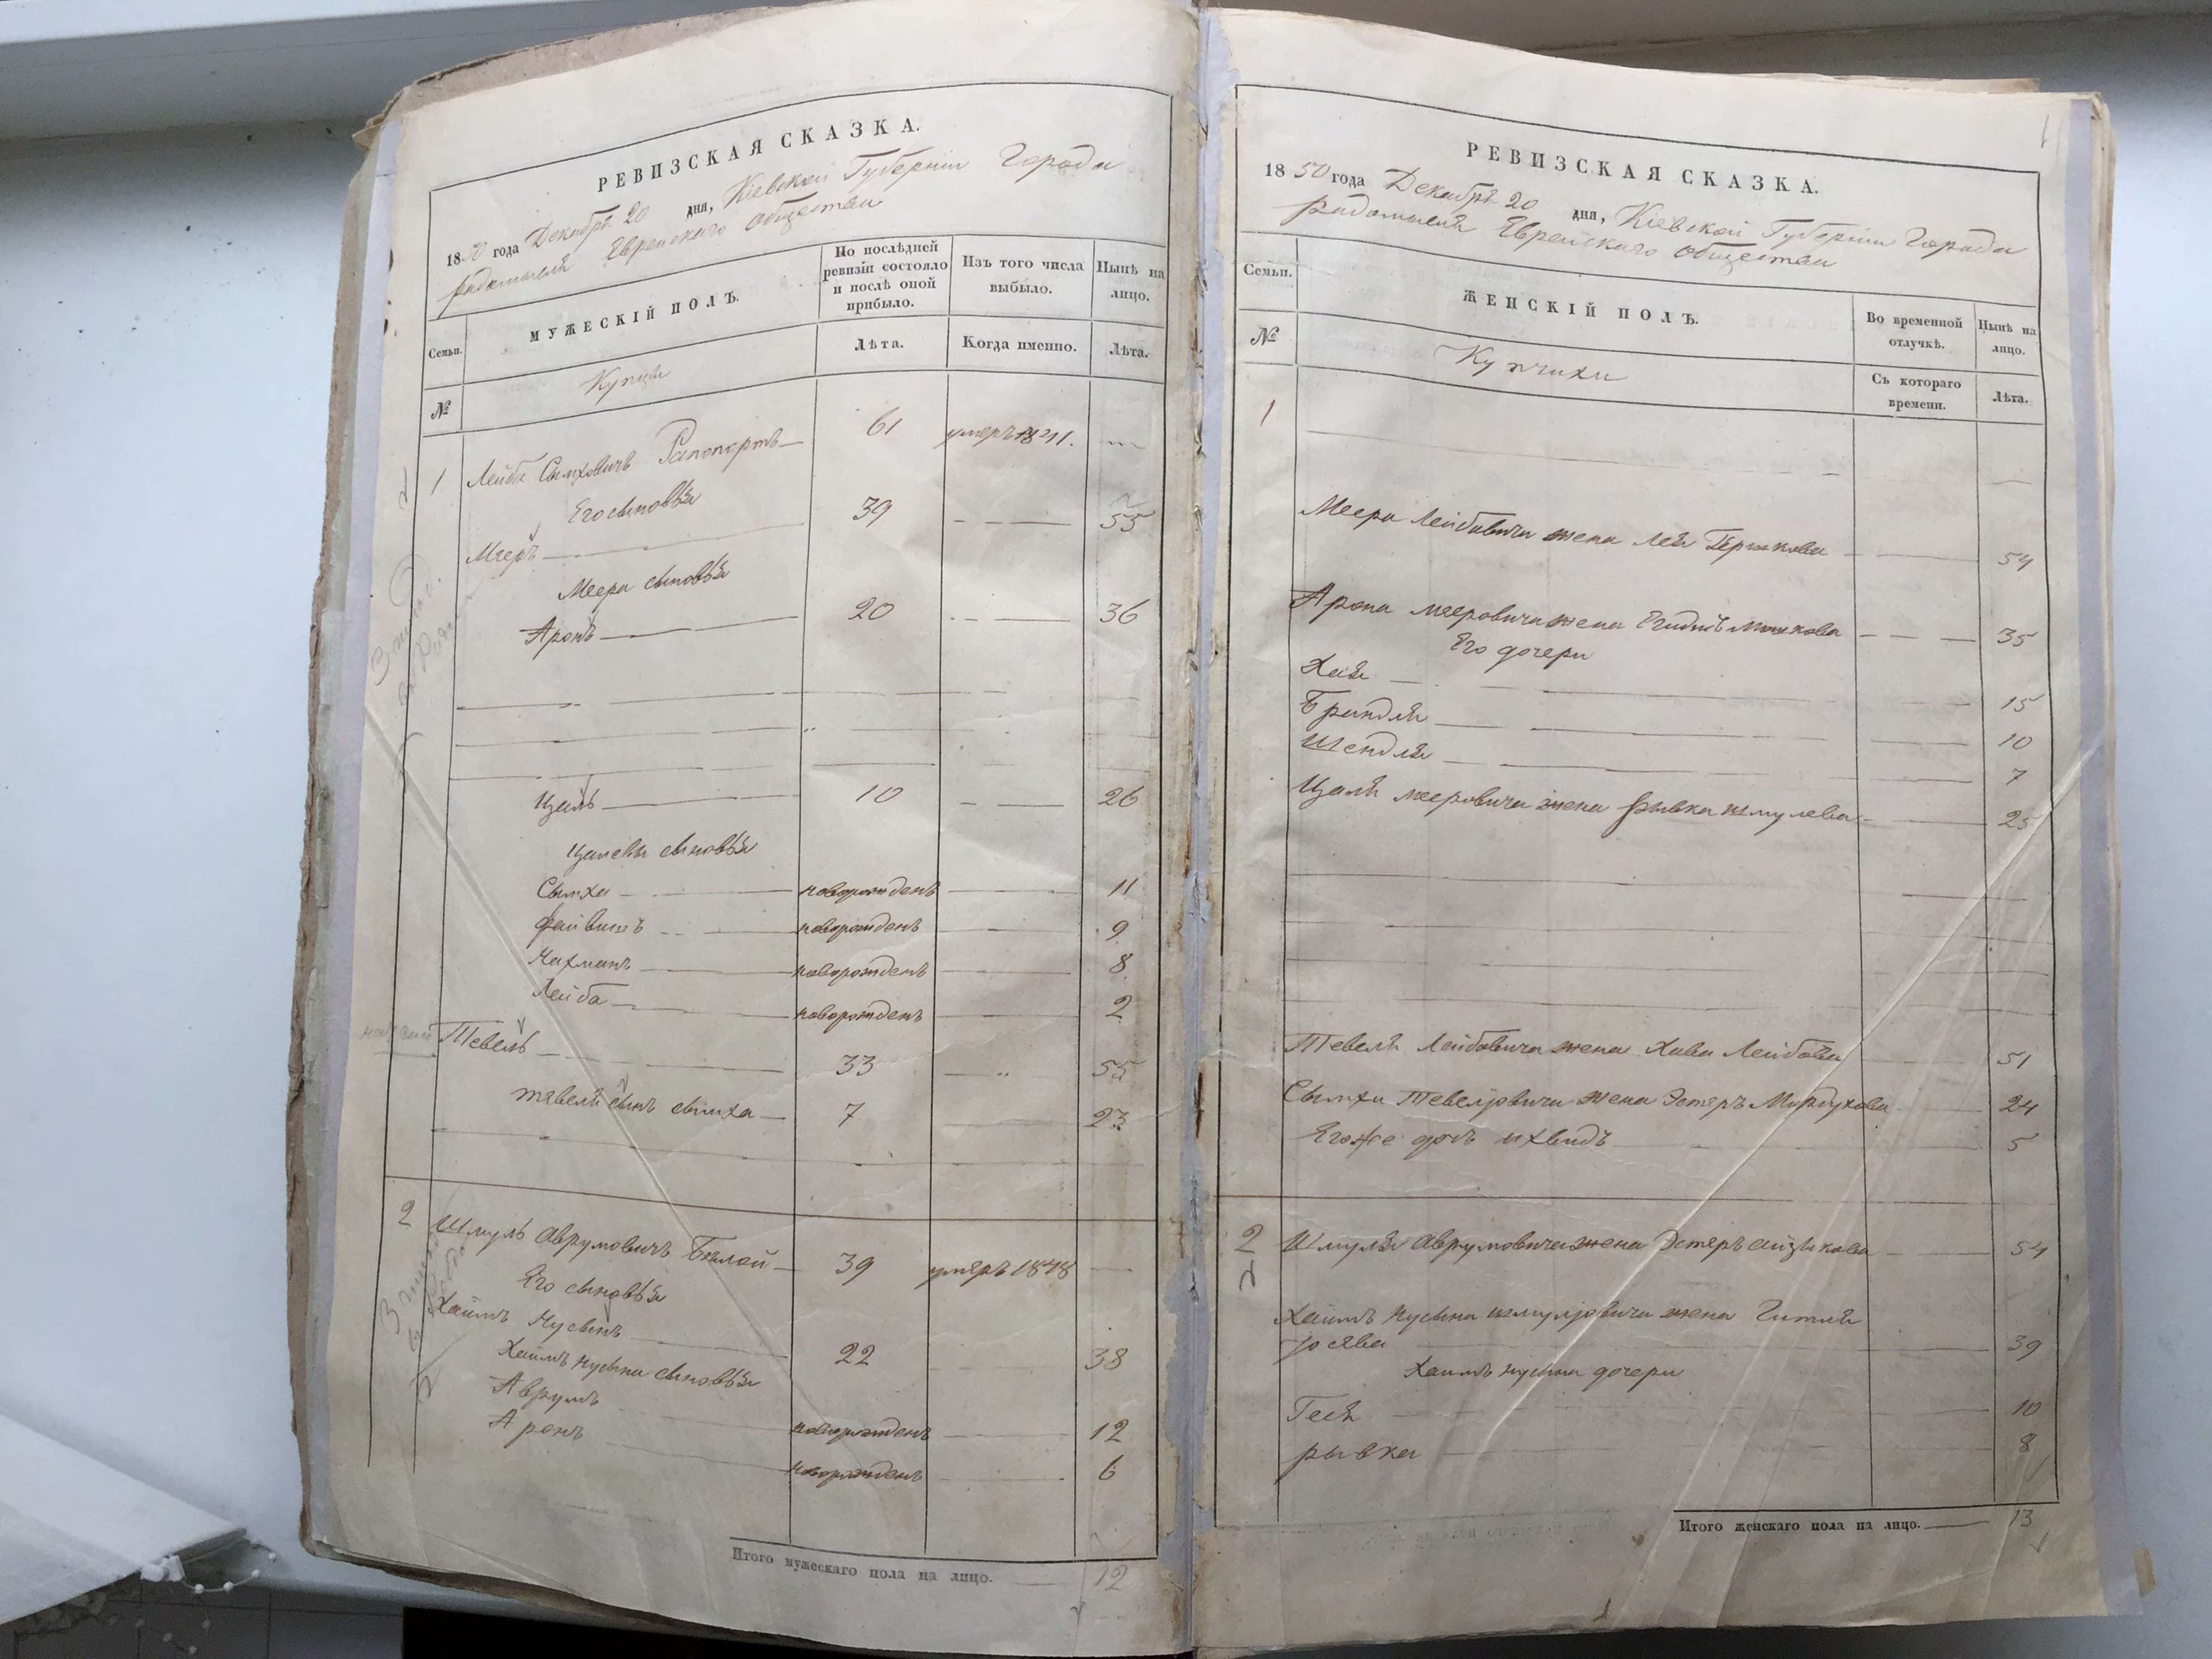 РЕВИЗСКАЯ СКАЗКА.
1850 года Декабръ 20 дня, Кіевской Губерніи Города
радомысля Еврейскаго общества
Семьи.
МУЖЕСКІЙ ПОЛЪ.
По послѣдней ревизіи состояло и послѣ оной прибыло.
Изъ того числа выбыло.
Нынѣ на лицо.
№
Купцы
Лѣта.
Когда именно.
Лѣта.
1 Лейба Сымховичъ Рапопортъ 61 умеръ 1841.
Его сыновья
Мееръ 39 55
Меера сыновья
Аронъ 20 36
Цаль 10 26
Цалевы сыновья
Сымха новорожденъ 11
Файвишъ новорожденъ 9
Нахманъ новорожденъ 8
Лейба новорожденъ 2
Тевель 33 55
тявеля сынъ сымха 7 23
2 Шмуль Аврумовичъ Бѣлой 39 умеръ 1848
Его сыновья
Хаимъ Нусынъ 22 38
Хаимъ нусына сыновья
Аврумъ новорожденъ 12
Аронъ новорожденъ 6
Итого мужескаго пола на лицо. 12
РЕВИЗСКАЯ СКАЗКА.
1850 года Декабръ 20 дня, Кіевской Губерніи Города
радомысля Еврейскаго общества
Семьи.
ЖЕНСКІЙ ПОЛЪ.
Во временной отлучкѣ.
Нынѣ на лицо.
№
Купчихи
Съ котораго времени.
Лѣта.
1
Меера Лейбовича жена Лея Гершкова 54
Арона мееровича жена мошкова 35
Его дочери
Хая 15
Бриндля 10
Шендля 7
Цаля мееровича жена рывка шмулева 25
Тевеля Лейбовича жена Хава Лейбова 51
Сымхи Тевелјовича жена Эстеръ Мордухова 24
Егоже дочь 5
2 Шмуля Аврумовича жена Эстеръ айзикова 54
Хаимъ Нусына шмулјовича жена Гитля
Јосява 39
Хаимъ нусына дочери
Гися 10
рывка 8
Итого женскаго пола на лицо. 13